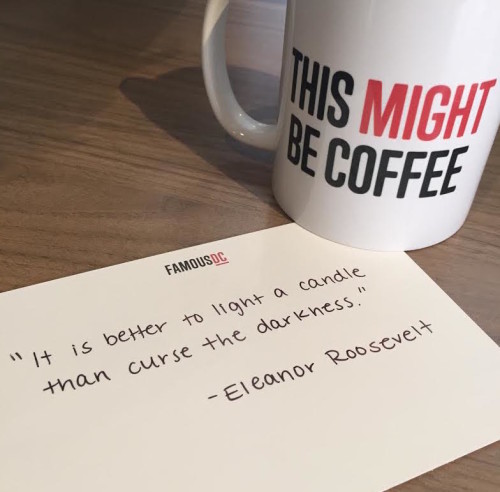 THIS MIGHT
BE COFFEE
FAMOUSDC
"It is better to light a candle
than curse the darkness."
-Eleanor Roosevelt